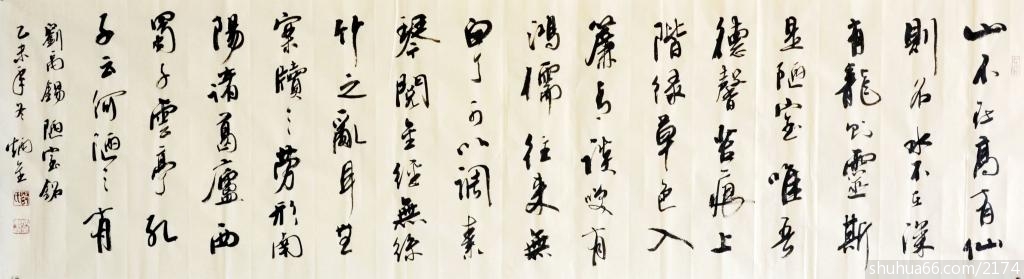 山不在高有仙
則名水不在深
有龍則靈斯
是陋室唯吾
德馨苔痕上
階緑草色入
簾青談笑有
鴻儒往来無
白丁可以調素
琴閲金經無絲
竹之亂耳無
案牘之勞形南
陽諸葛廬西
蜀子雲亭孔
子云何陋之有
劉禹錫陋室銘
乙未年冬炳金
shuhua66.com/2174